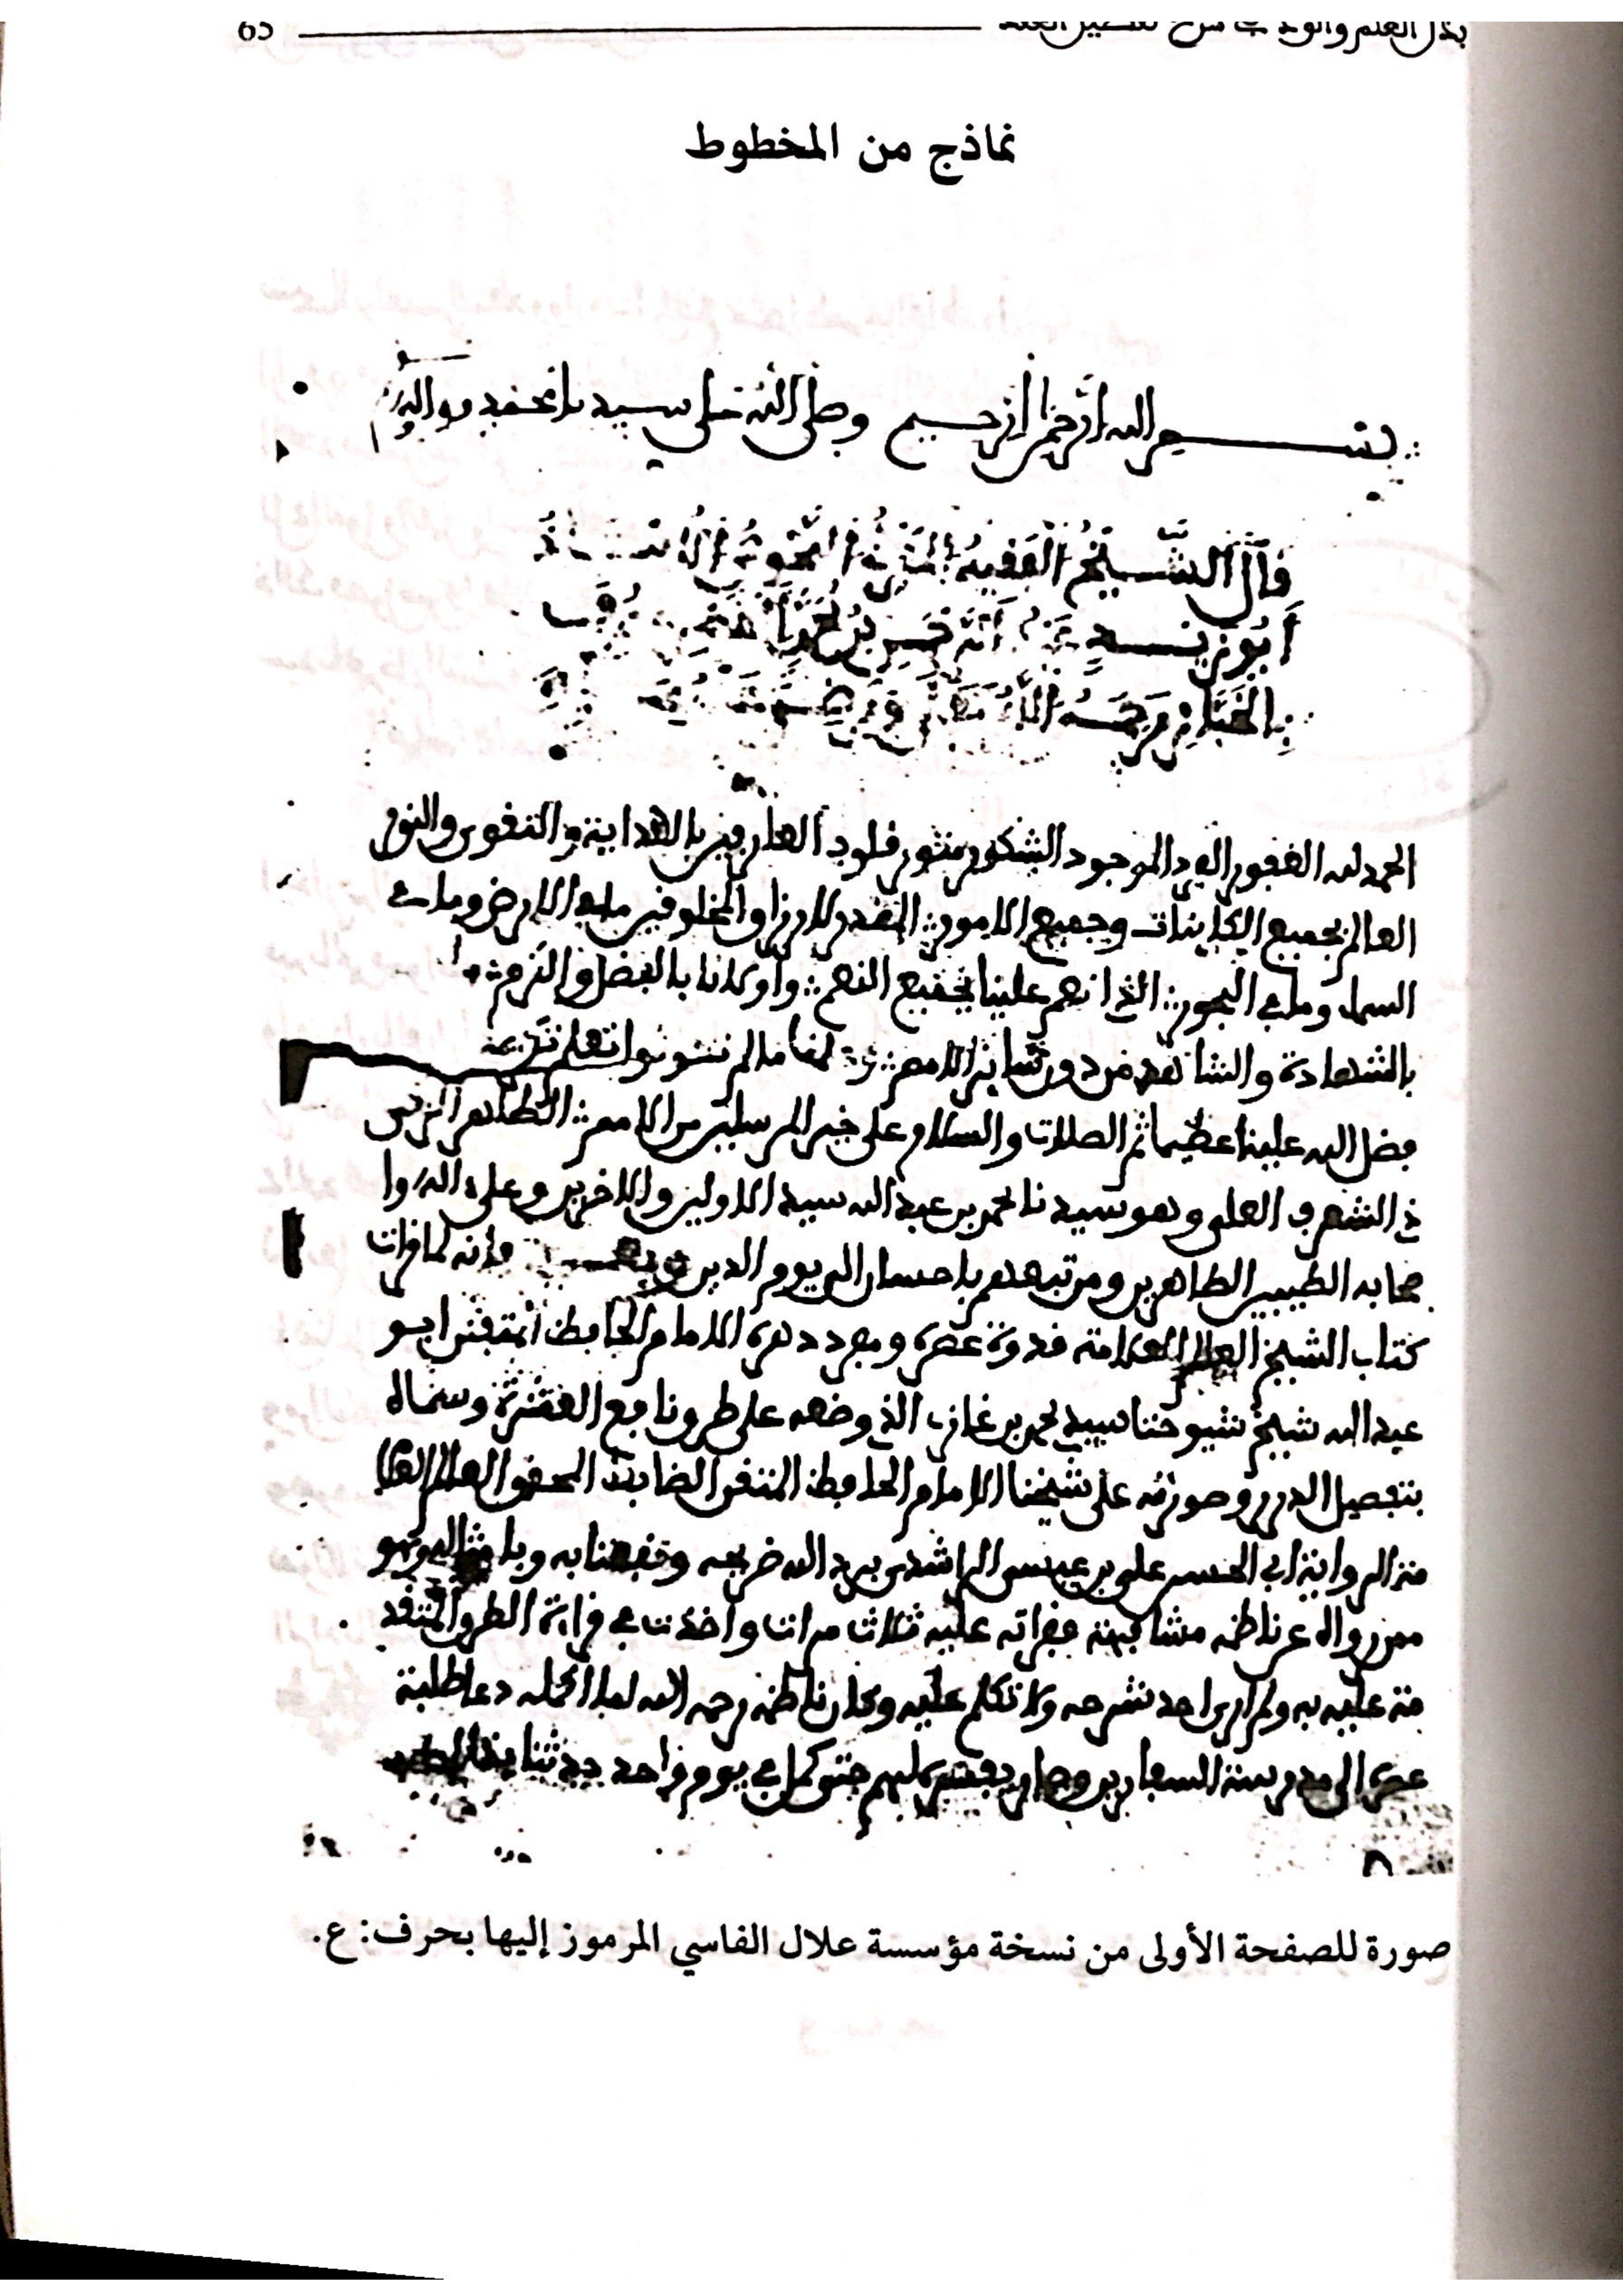 بذل العلم والود في شرح تفصيل العقد 65
نماذج من المخطوط
بسم الله الرحمن الرحيم وصلى الله على سيدنا محمد وآله
قال الشيخ الفقيه الاستاذ
أبو زيد عبد الرحمن بن
بالخباز رحمه الله
الحمد لله الغفور الفرد الموجود الشكور منور قلوب العارفين بالهداية والتقوى والنور
العالم بجميع الكاينات وجميع الامور المقدر للارزاق والمخلوقين ما في الارض وما في
السماء وما في البحور الذي انعم علينا بجميع النعم واولانا بالفضل والكرم
بالشهادة والشاهد من دون سائر الامم لم تكونوا تعلم
فضل الله علينا عظيما ثم الصلات والسلام على خير المرسلين من الامم الطاهر الزكي
ذي الشرف العلى وهو سيدنا محمد بن عبد الله سيد الاولين والاخرين وعلى اله وا
صحابه الطيبين الطاهرين ومن تبعهم باحسان الى يوم الدين فإنه لما قرات
كتاب الشيخ العالم العلامة قدوة عصره ومفرد دهره الامام الحافظ المتقن ابو
عبد الله شيخ شيوخنا سيدي محمد بن غازي الذي وضعه على طرق نافع العشرة وسماه
بتفصيل الدرر وصورته على شيخنا الامام الحافظ المتقن الضابط المحقق العالم
الرواية ابي الحسن علي بن عيسى الراشدي برد الله ضريحه ونفعنا به وبامثاله وهو
ممن رواه عن ناظمه مشافهة فقراته عليه ثلاث مرات واخذت في قراءة الطرق المتقد
مة عليه به ولم ار من احد شرحه ولا تكلم عليه وكان ناظمه رحمه الله لما اكمله دعا طلبة
عصره الى مدرسة حتى كمل في يوم واحد حدثنا
صورة للصفحة الأولى من نسخة مؤسسة علال الفاسي المرموز إليها بحرف: ع.